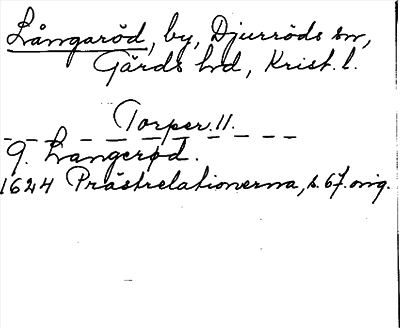 Långaröd, by, Djurröds sn,
Gärds hd, Krist. l.
Torper. 11.
9. Langerød.
1624 Prästrelationerna, s. 67. orig.